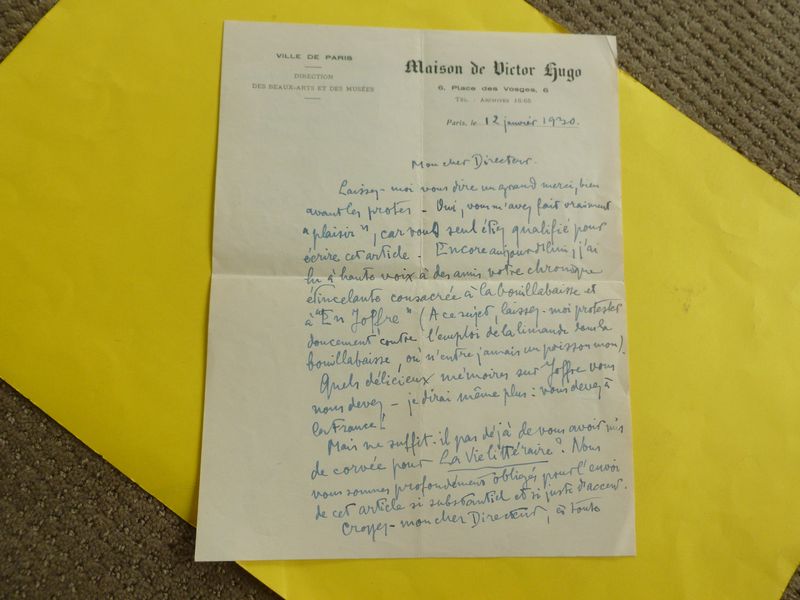 VILLE DE PARIS
DIRECTION
DES BEAUX-ARTS ET DES MUSÉES
Maison de Victor Hugo
6, Place des Vosges, 6
TÉL. : ARCHIVES 16-65
Paris, le 12 janvier 1930.
Mon cher Directeur.
Laissez-moi vous dire un grand merci, bien
avant les protes - Oui, vous m'avez fait vraiment
"plaisir", car vous seul étiez qualifié pour
écrire cet article. Encore aujourd'hui, j'ai
lu à haute voix à des amis votre chronique
étincelante consacrée à la bouillabaisse et
à "En Joffre" (A ce sujet, laissez-moi protester
doucement contre l'emploi de la limande dans la
bouillabaisse, où n'entre jamais un poisson mou).
Quels délicieux mémoires sur Joffre vous
nous devez - je dirai même plus : vous devez à
la France !
Mais ne suffit-il pas déjà de vous avoir mis
de corvée pour La Vie littéraire ? Nous
vous sommes profondément obligés pour l'envoi
de cet article si substantiel et si juste d'accent.
Croyez-mon cher Directeur, à toute